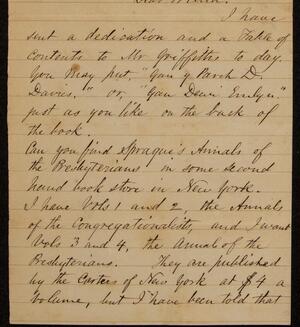 Dear Brother.
I have
sent a dedication and a Table of
Contents to Mr Griffiths to day.
You may put, "Gan y Parch D.
Davies," or, "Gan Dewi Emlyn"
just as you like on the back of
the book.
Can you find Sprague's Annals of
the Presbyterians in some second
hand book store in New York.
I have Vols 1 and 2 the Annals
of the Congregationalists, and I want
Vols 3 and 4, the Annal of the
Presbyterians. They are published
by the Carters of New York at $4 a
Volume, but I have been told that